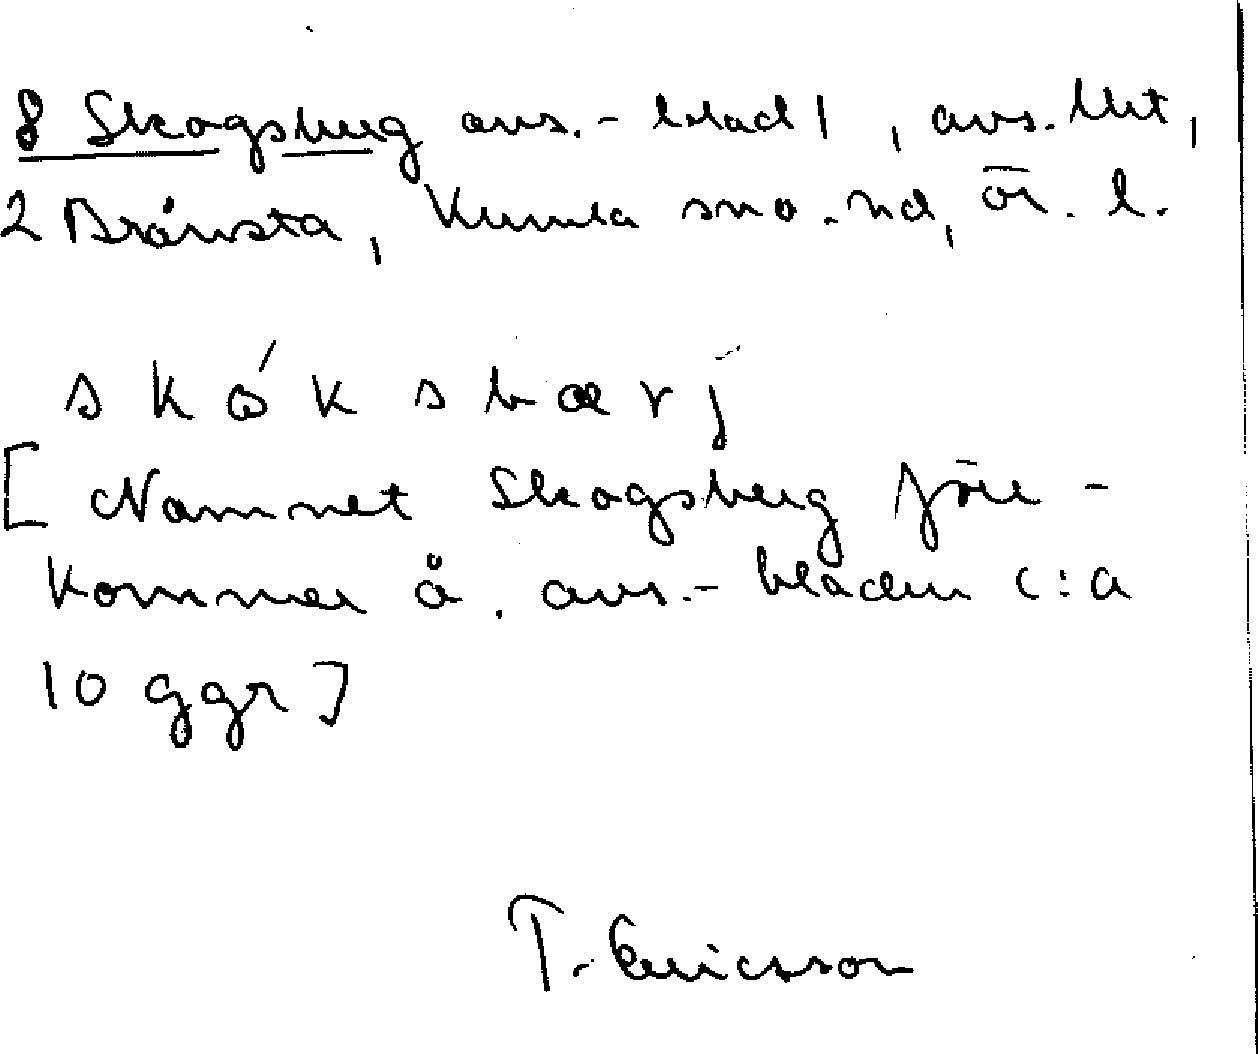 8 Skogsberg avs.-blad 1, avs. Utt,
2 Brånsta, Kumla sno. hd, Ör. l.
skóksbærj
[Namnet Skogsberg före-
kommer å. avs.-bladen c:a
10 ggr]
T. Ericsson